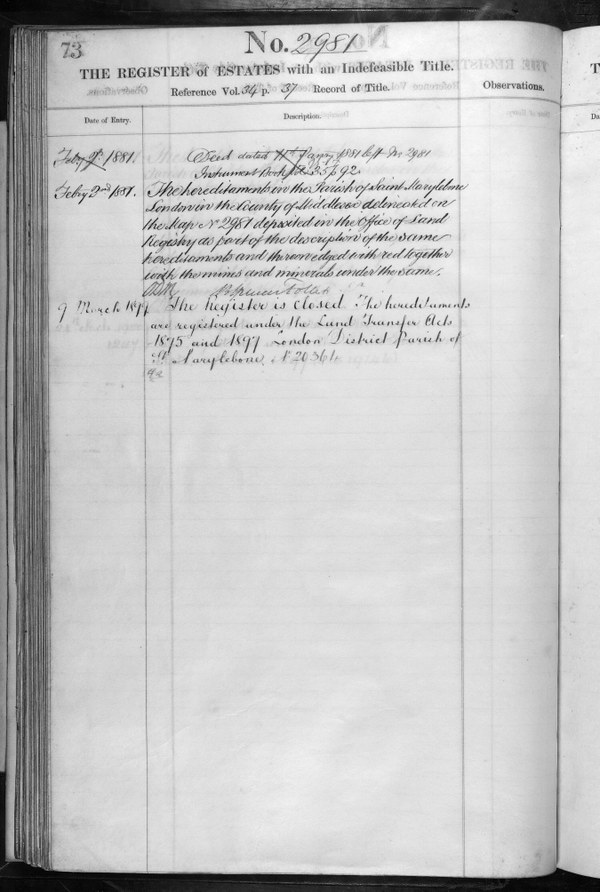 73
No. 2981
THE REGISTER of ESTATES with an Indefeasible Title.
Reference Vol. 34 p. 37 Record of Title.
Observations.
Date of Entry.
Description.
1881. Deed dated 1881 left No 2981
Instrument Book 35 p 92
Febry 2nd 1881. The hereditaments in the Parish of Saint Marylebone
London in the County of Middlesex delineated on
the Map No 2981 deposited in the Office of Land
Registry as part of the description of the same
hereditaments and thereon edged with red together
with the mines and minerals under the same.
9 March 1899 The Register is closed The hereditaments
are registered under the Land Transfer Acts
1875 and 1897 London District Parish of
St Marylebone. No 20361